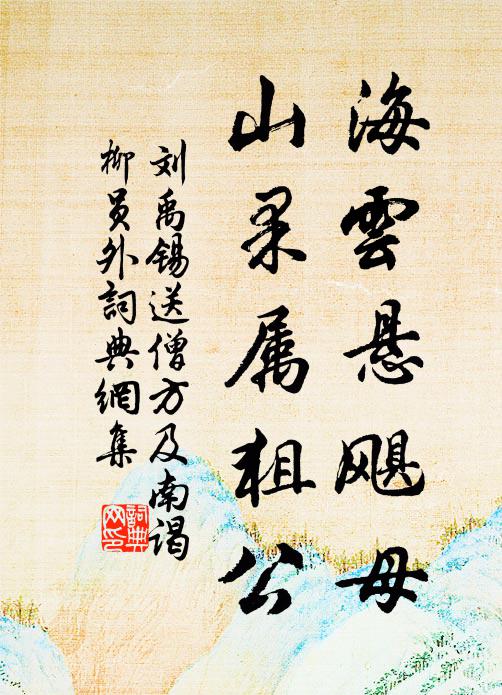 海雲悬飓母
山果属狙公
刘禹锡送僧方及南谒
柳員外詞典網集
詞典网印